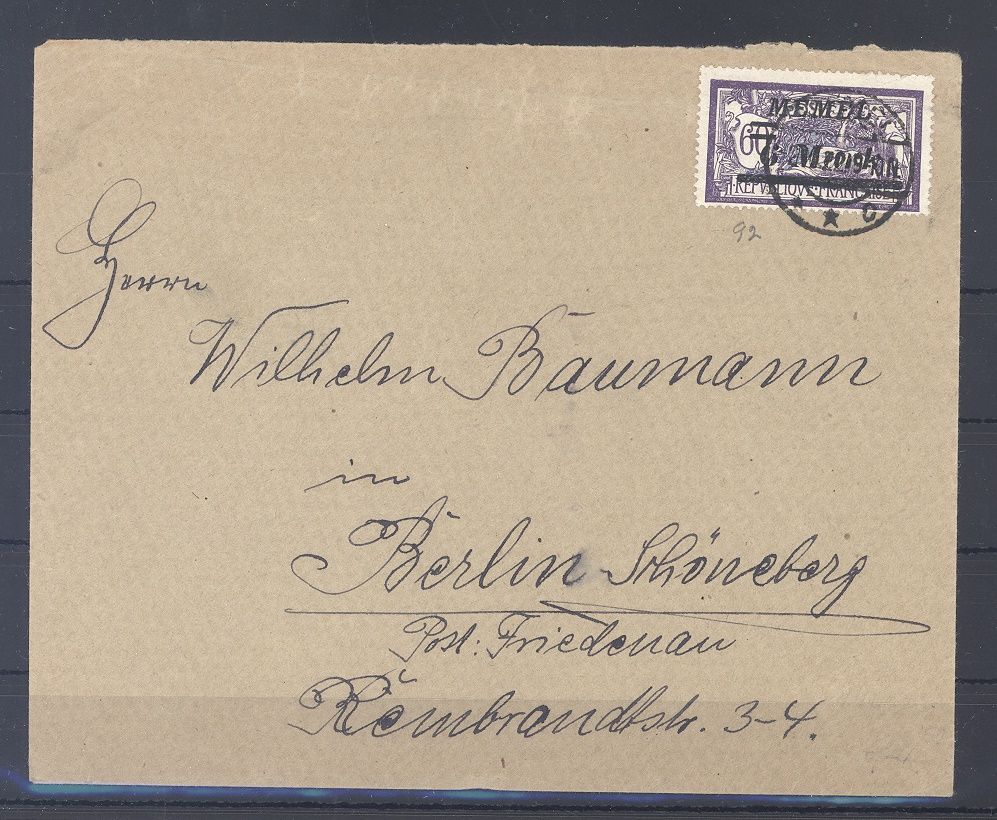 MEMEL
60
6 Mark
REPVBLIQVE FRANÇAISE
C
92
Herrn
Wilhelm Baumann
in
Berlin-Schöneberg
Post: Friedenau
Rembrandtstr. 3-4.